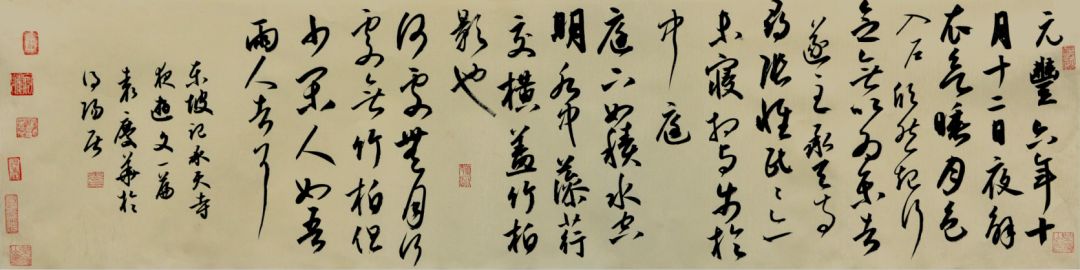 元豐六年十
月十二日夜解
衣欲睡月色
入戶欣然起行
念無以為樂者
遂至承天寺
尋張懷民々亦
未寢相與步於
中庭
庭下如積水空
明水中藻荇
交橫蓋竹柏
影也
何處無月何
處無竹柏但
少閑人如吾
兩人者耳
東坡記承天寺
夜遊文一篇
袁慶華於